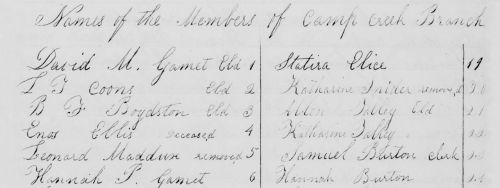 Names of the Members of Camp Creek Branch
David M. Gamet Eld 1
L T Coons Eld 2
B F Boydston Eld 3
Enos Ellis deceased 4
Leonard Maddux removed 5
Hannah P. Gamet 6
Statira Elice 19
Katharine removed 20
Talley Eld 21
Katharine Talley 22
Samuel Burton Clerk 23
Hannah Burton 24